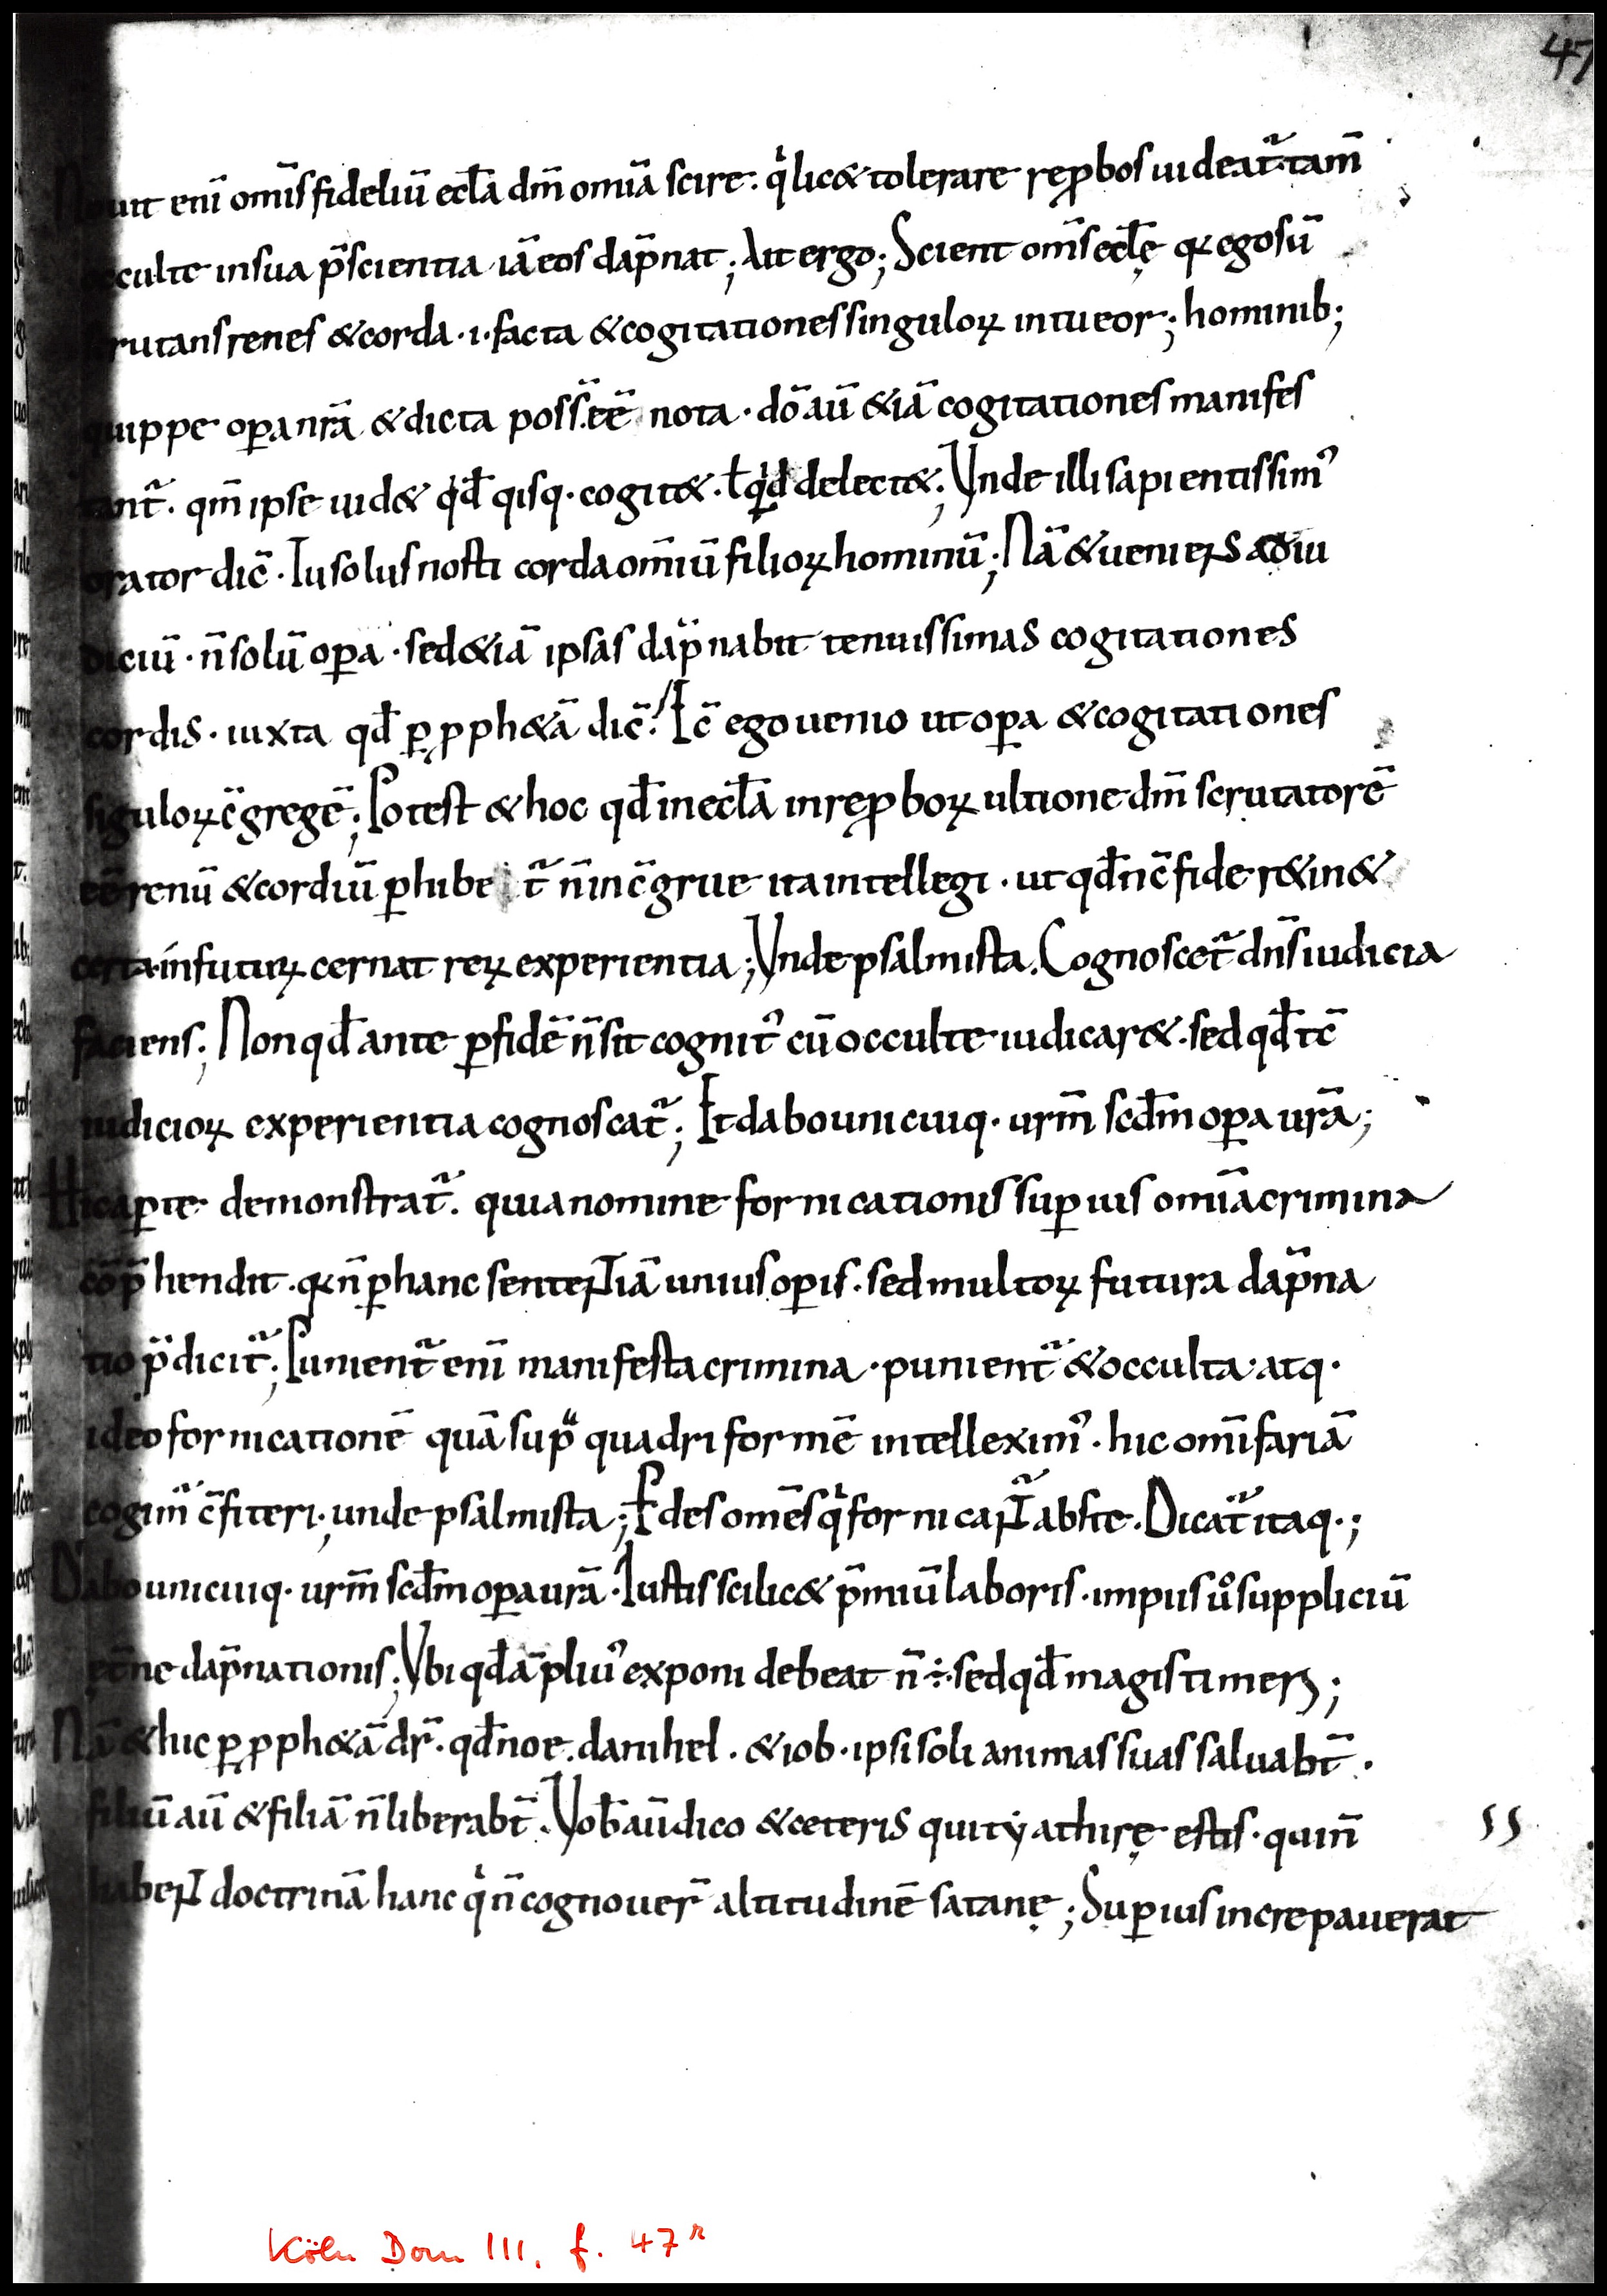 47
Nouit enī om̄s fideliū ecl̄a dm̄ omīa scire. qͥ lic& tolerare rep̱bos uideat᷑ tam̄
occulte in sua p̄scientia iā eos dāpnat; Ait ergo; Scient om̄s ecl̄ę qꝛ ego sū
scrutans renes & corda ·i· facta & cogitationes singuloꝝ intueor; hominib;
quippe oꝑa nr̄a & dicta poss̄ ēē nota · dō aū &iā cogitationes manifes
tant᷑ · qm̄ ipse uid& qͥd qisq· cogit& · ł qͥd delect&; Vnde illi sapientissim᾽
orator dic̄ · Tu solus nosti corda omīū filioꝝ hominū; Nā & ueniens ad iu
diciū · n̄ solū oꝑa · sed &iā ipsas dāpnabit tenuissimas cogitationes
cordis · iuxta qd̄ ꝑ ꝓph&ā dic̄; Ec̄ ego uenio ut oꝑa & cogitationes
siguloꝝ c̄gregē; Potest & hoc qd̄ in ecl̄a in rep̱boꝝ ultione dm̄ scrutatorē
ēē renū & cordiū ꝑhibet᷑ n̄ inc̄grue ita intellegi · ut qd̄ nc̄ fide r&in&
certa in futuꝝ cernat reꝝ experientia; Vnde psalmista. Cognoscet᷑ dn̄s iudicia
faciens; Non qd̄ ante ꝑ fidē n̄ sit cognit᾽ cū occulte iudicar& · sed qd̄ tc̄
iudicioꝝ experientia cognoscat᷑; Et dabo unicuiq· urm̄ scd̄m oꝑa ur̄a;
Hic aꝑte demonstrat᷑ · quia nomine fornicationis suꝑius omīa crimina
cōp̄hendit · qꝛ n̄ ꝑ hanc sententiā unius oꝑis · sed multoꝝ futura dāpna
tio p̄dicit᷑; Punient᷑ enī manifesta crimina · punient᷑ & occulta · atq·
ideo fornicationē quā sup̄ quadriformē intellexim᾽ · hic om̄ifariā
cogim᾽ c̄fiteri · unde psalmista; P̱des omēs qͥ fornicant᷑ abs te. Dicat᷑ itaq·;
Dabo unicuiq· urm̄ scd̄m oꝑa ur̄a · Iustis scilic& p̄miū laboris · impiis uͦ suppliciū
ęt̄ne dāpnationis; Vbi qd̄ āpliu᾽ exponi debeat n̄ ÷ · sed qd̄ magis timeri;
Nā & hic ꝑ ꝓph&ā dr̄ · qd̄ noe · danihel · & iob · ipsi soli animas suas saluabt̄ ·
filiū aū & filiā n̄ liberabt̄. Vob̄ aū dico & ceteris qui tẏathirę estis · qui n̄
habent doctrinā hanc qͥ n̄ cognouer̄ altitudinē satanę; Suꝑius increpauerat
ss
Köln Dom III, f. 47ʳ